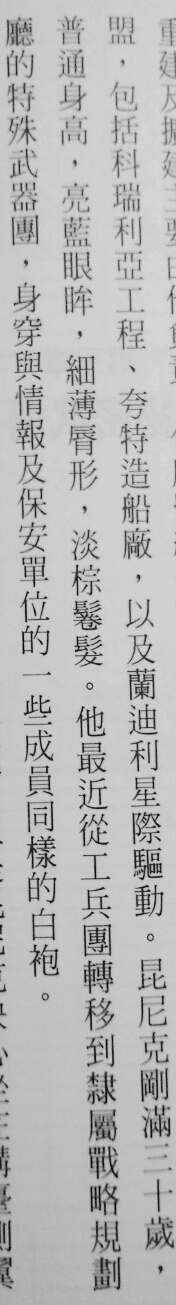 重建及擴建主要由
盟，包括科瑞利亞工程、夸特造船廠，以及蘭迪利星際驅動。昆尼克剛滿三十歲，
普通身高，亮藍眼眸，細薄脣形，淡棕鬈髮。他最近從工兵團轉移到隸屬戰略規劃
廳的特殊武器團，身穿與情報及保安單位的一些成員同樣的白袍。